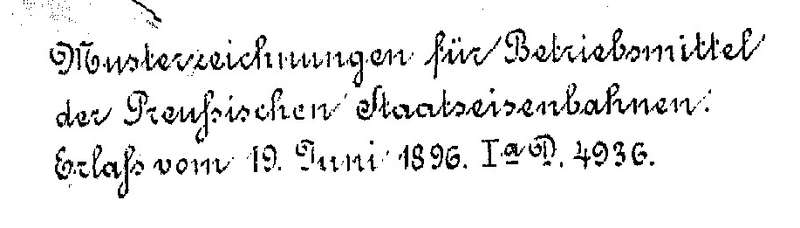 Musterzeichnungen für Betriebsmittel
der Preußsischen Staatseisenbahnen.
Erlaſs vom 19. Juni 1896. Iª D. 4936.